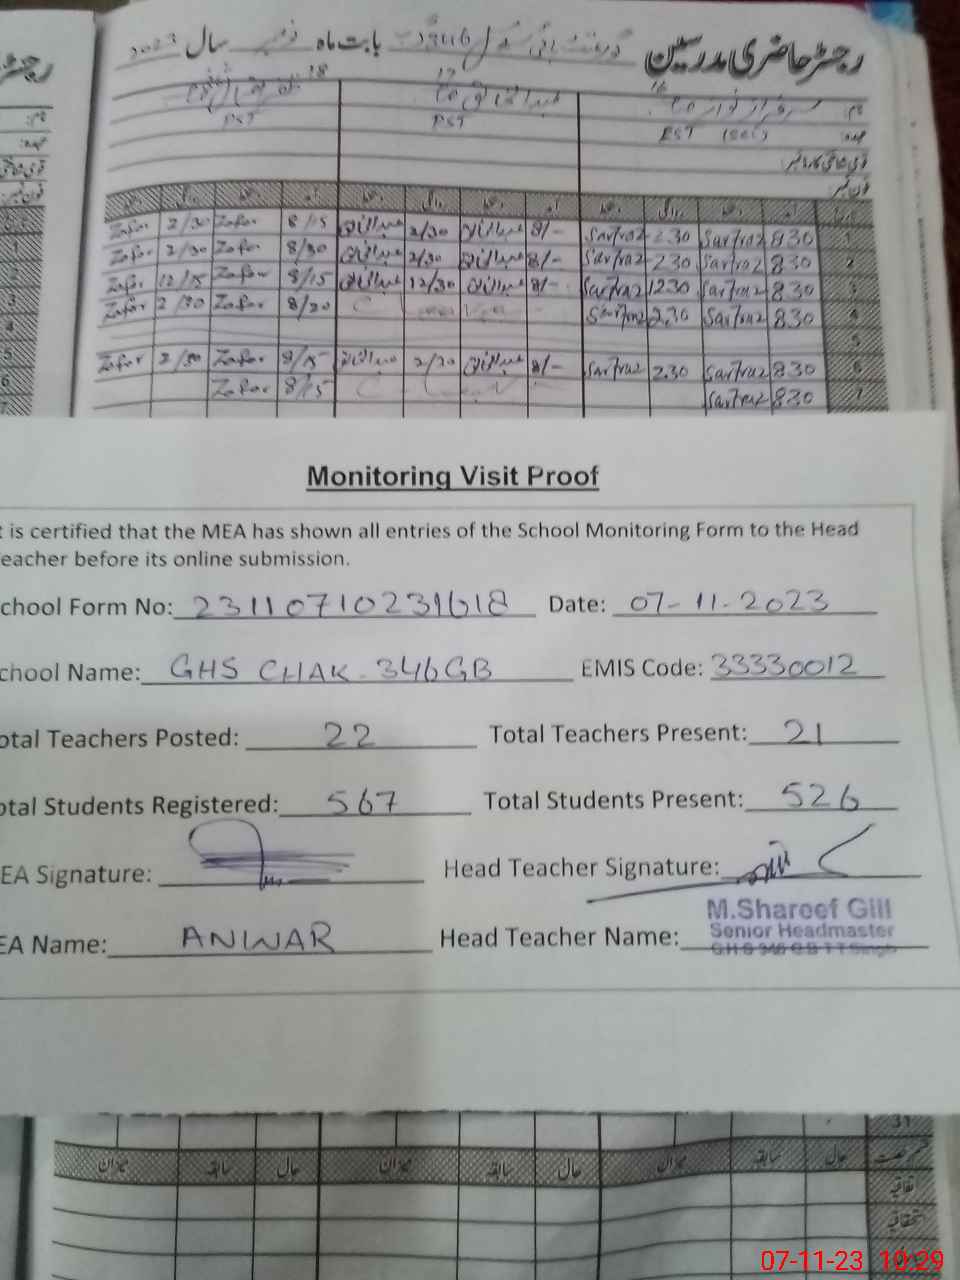 رجسٹر حاضری مدرسین بابت ماہ نومبر سال 2023
18 17 16
نام:
PST PST EST (Sci)
عہدہ:
قومی شناختی کارڈ نمبر:
فون نمبر:
Zafar 2/30 Zafar 8/15 2/30 8/- Sarfraz 2.30 Sarfraz 8.30 1
Zafar 2/30 Zafar 8/30 2/30 8/- Sarfraz 2.30 Sarfraz 8.30 2
Zafar 12/15 Zafar 8/15 12/30 8/- Sarfraz 12.30 Sarfraz 8.30 3
Zafar 2/30 Zafar 8/20 Sarfraz 2.30 Sarfraz 8.30 4
5
Zafar 2/30 Zafar 8/15 2/30 8/- Sarfraz 2.30 Sarfraz 8.30 6
Zafar 8/15 Sarfraz 8.30 7
Monitoring Visit Proof
t is certified that the MEA has shown all entries of the School Monitoring Form to the Head
eacher before its online submission.
chool Form No: 23110710231618 Date: 07-11-2023
chool Name: GHS CHAK. 346GB EMIS Code: 33330012
otal Teachers Posted: 22 Total Teachers Present: 21
otal Students Registered: 567 Total Students Present: 526
EA Signature: Head Teacher Signature:
EA Name: ANWAR Head Teacher Name: M.Shareef Gill
Senior Headmaster
G.H.S 346 G.B T.T Singh
31
میزان سابقہ حال میزان سابقہ حال میزان سابقہ حال
اتفاقیہ
استحقاقیہ
07-11-23 10:29